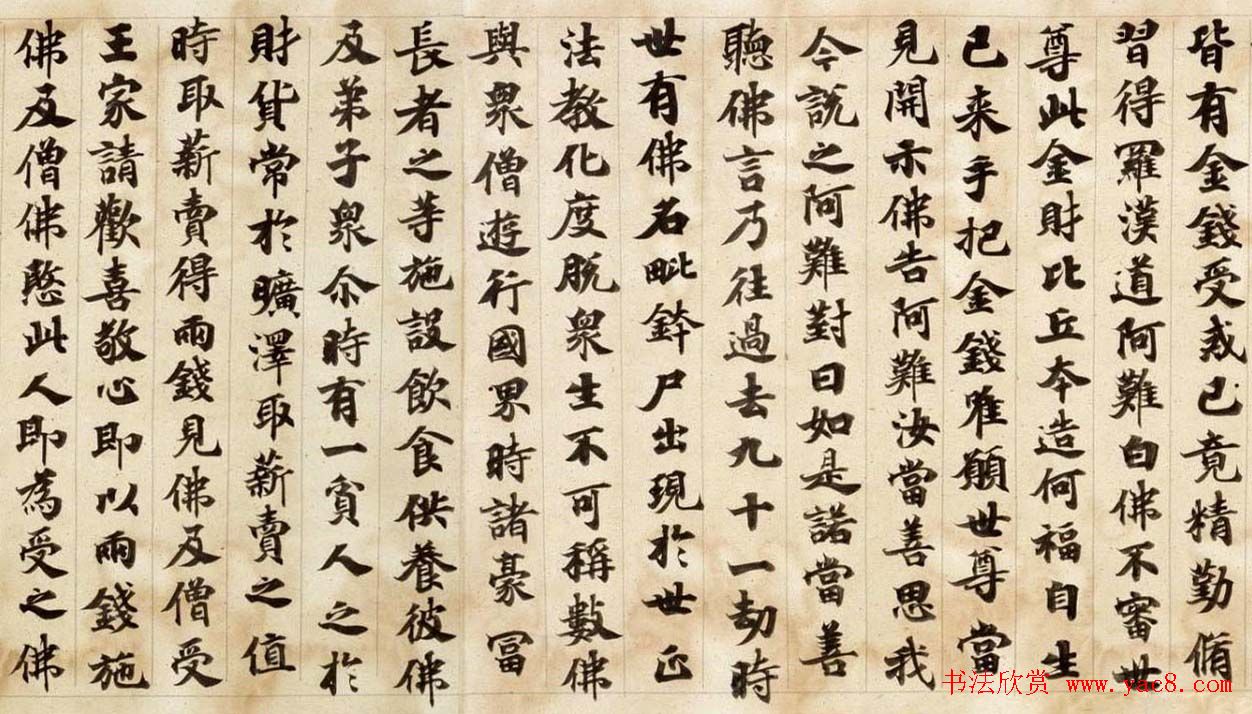 皆有金錢受戒已竟精勤脩
習得羅漢道阿難白佛不審世
尊此金財比丘本造何福自生
已来手把金錢唯願世尊當
見開示佛告阿難汝當善思我
今說之阿難對曰如是諾當善
聽佛言乃往過去九十一劫時
世有佛名毗鉢尸出現於世正
法教化度脫衆生不可稱數佛
與衆僧遊行國界時諸豪富
長者之等施設飲食供養彼佛
及弟子衆尒時有一貧人之於
財貨常於曠澤取薪賣之值
時取薪賣得兩錢見佛及僧受
王家請歡喜敬心即以兩錢施
佛及僧佛愍此人即為受之佛
书法欣赏 www.yac8.com